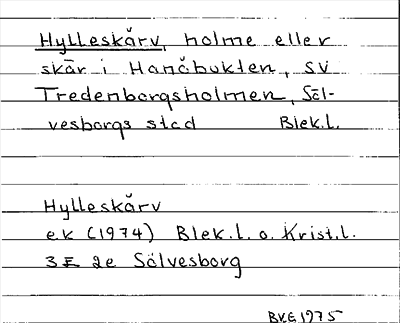 Hylleskärv, holme eller
skär i Hanöbukten, SV
Tredenborgsholmen, Söl-
vesborgs stad Blek.l.
Hylleskärv
e.k (1974) Blek.l. o. Krist.l.
3E 2e Sölvesborg
BKE 1975